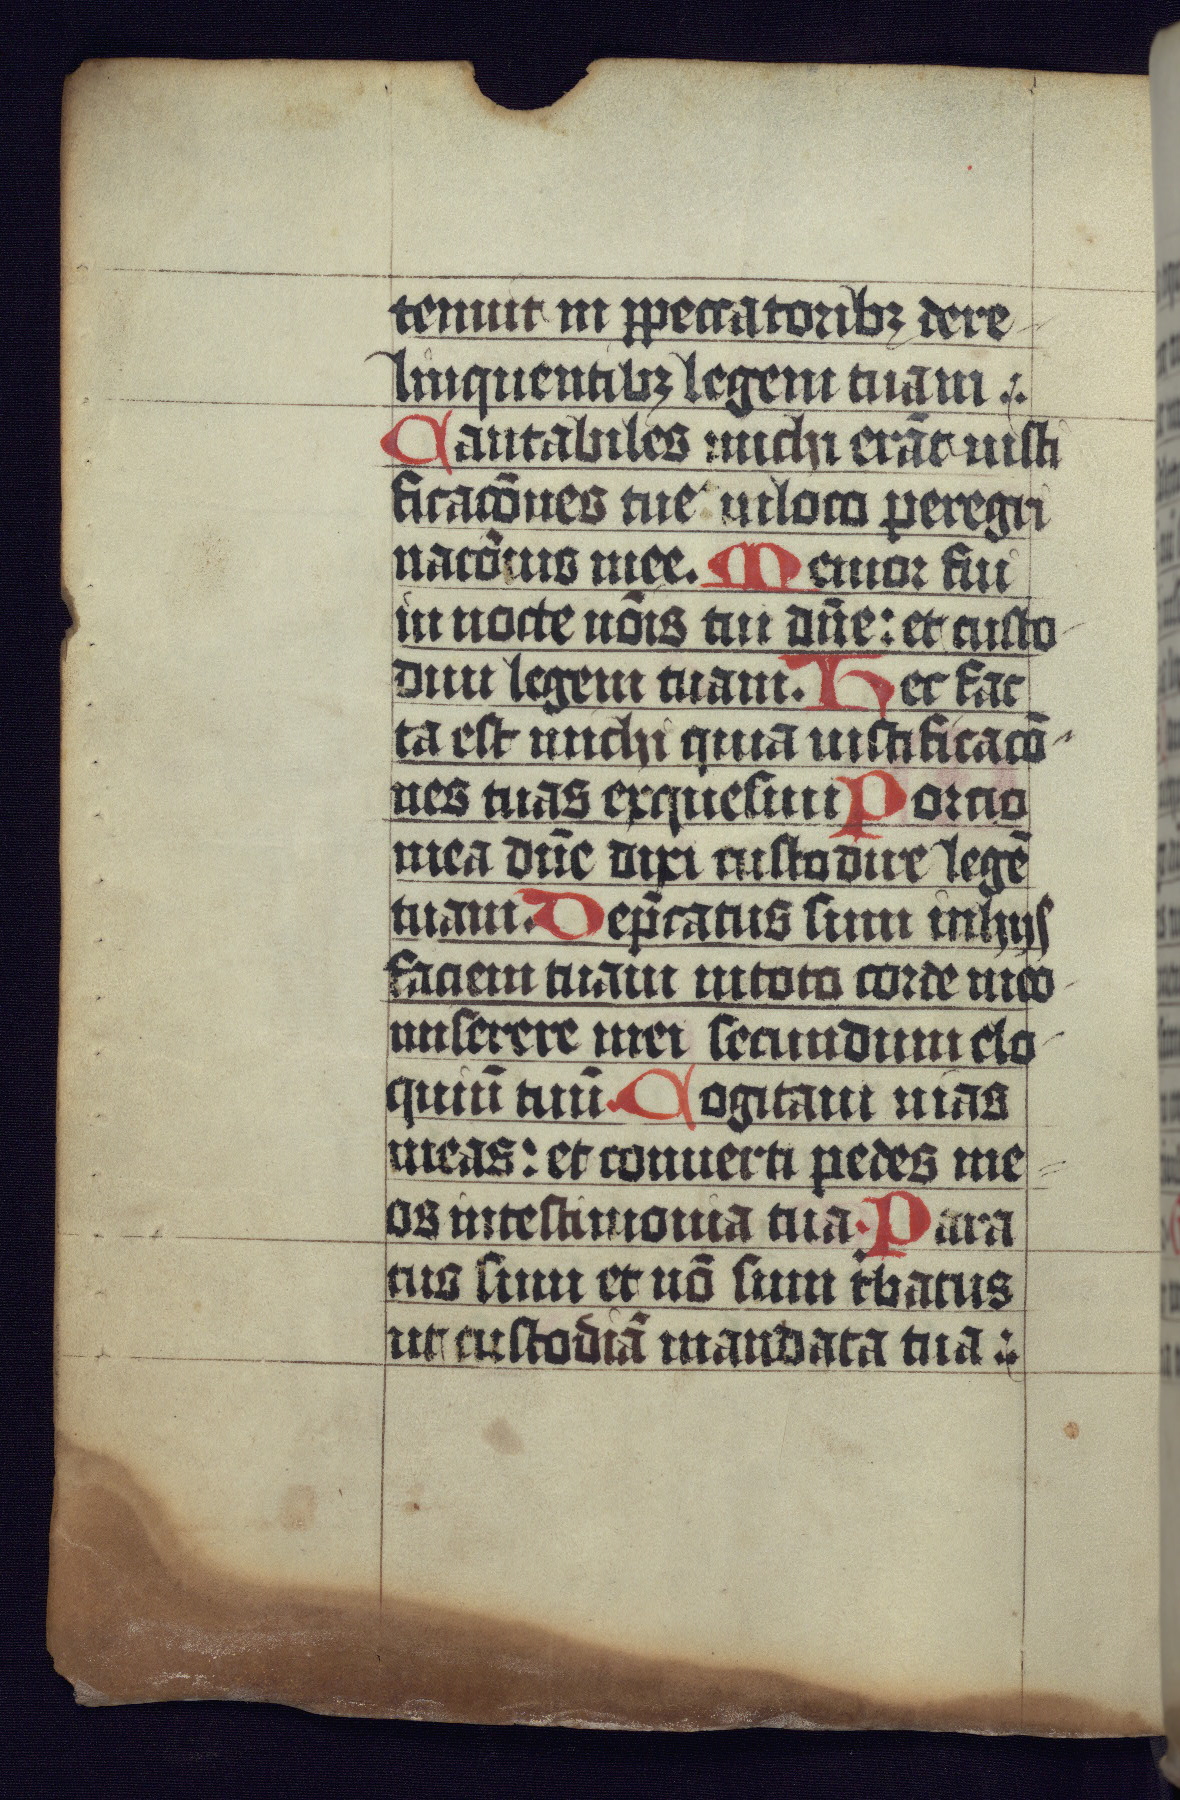 tenuit in ppeccatoribꝫ dere
linquentibꝫ legem tuam ⁖
Cantabiles michi erāt iusti
ficacōnes tue in loco peregri
nacōnis mee. Memor fui
in nocte nōis tui dn̄e: et custo
diui legem tuam. Hec fac
ta est michi quia iustificacō
nes tuas exquesiui Porcio
mea dn̄e dixi custodire legē
tuam. Dep̄catus sum inhijs
faciem tuam in toto corde meo
miserere mei secundum elo
quiū tuū. Cogitaui uias
meas: et conuerti pedes me
os in testimonia tua. Para
tus sum et nō sum t̄batus
ut custodiā mandata tua ⁖